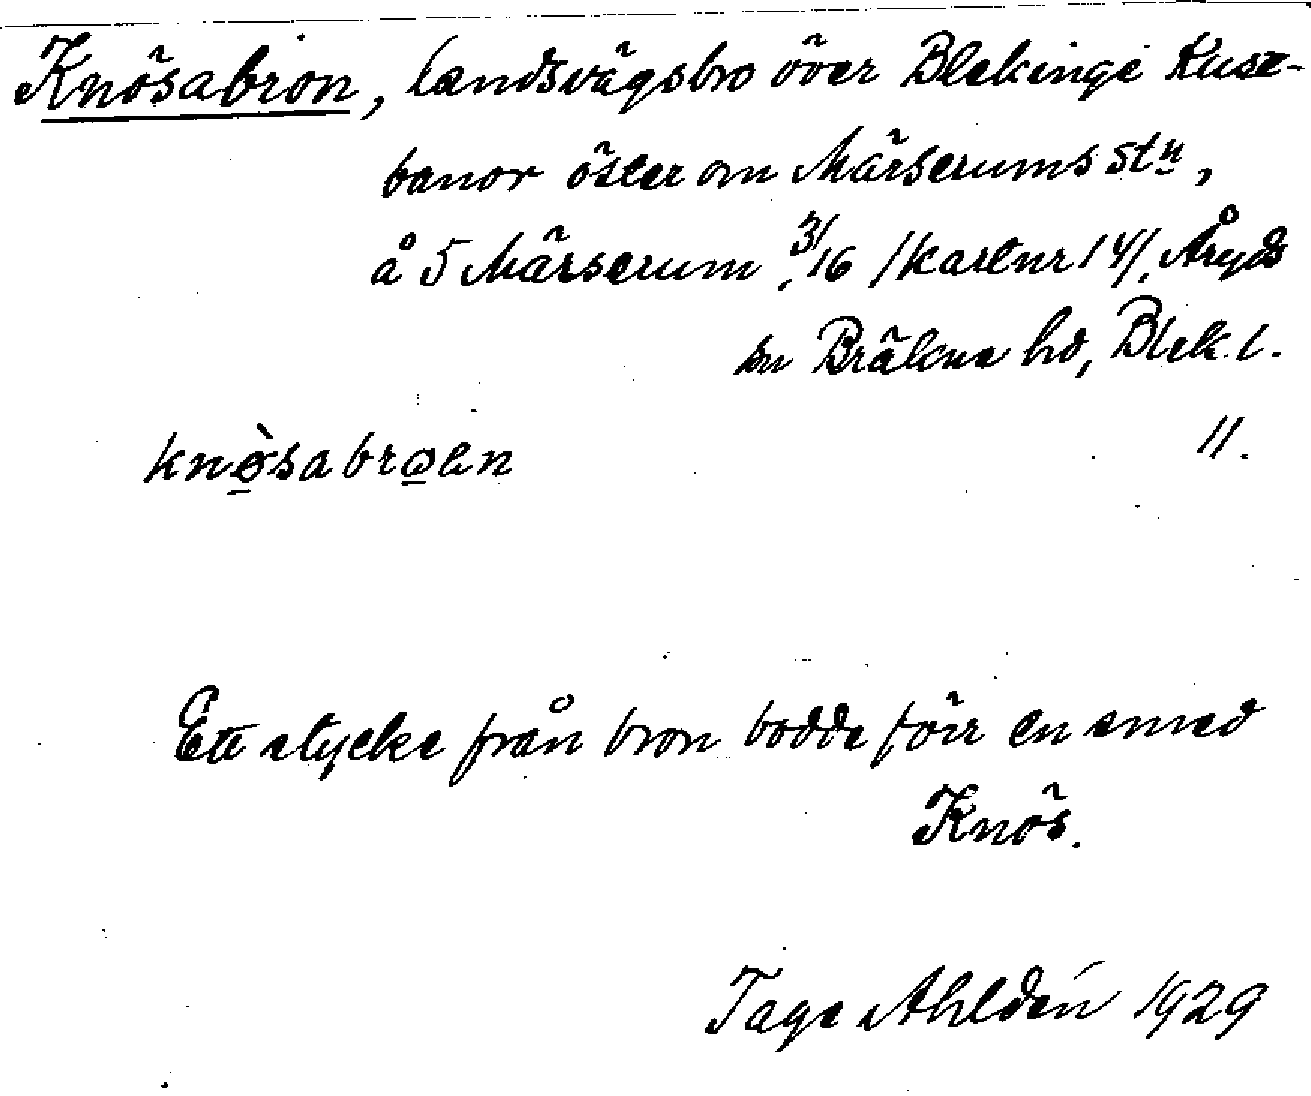 Knösabron, landsvägsbro över Blekinge Kust-
banor öster om Märserums stn,
å 5 Märserum, 3/16 /kartnr 14/, Åryds
sn Bräkne hd, Blek. l.
knø̠̀sabrø̠en 11.
Ett stycke från bron bodde förr en smed
Knös.
Tage Ahldén 1929